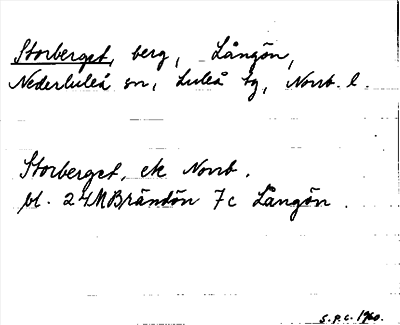 Storberget, berg, Långön,
Nederluleå sn, Luleå tg, Norrb. l.
Storberget, ek Norrb.
bl. 24M Brändön 7c Långön.
S.P.C. 1960.